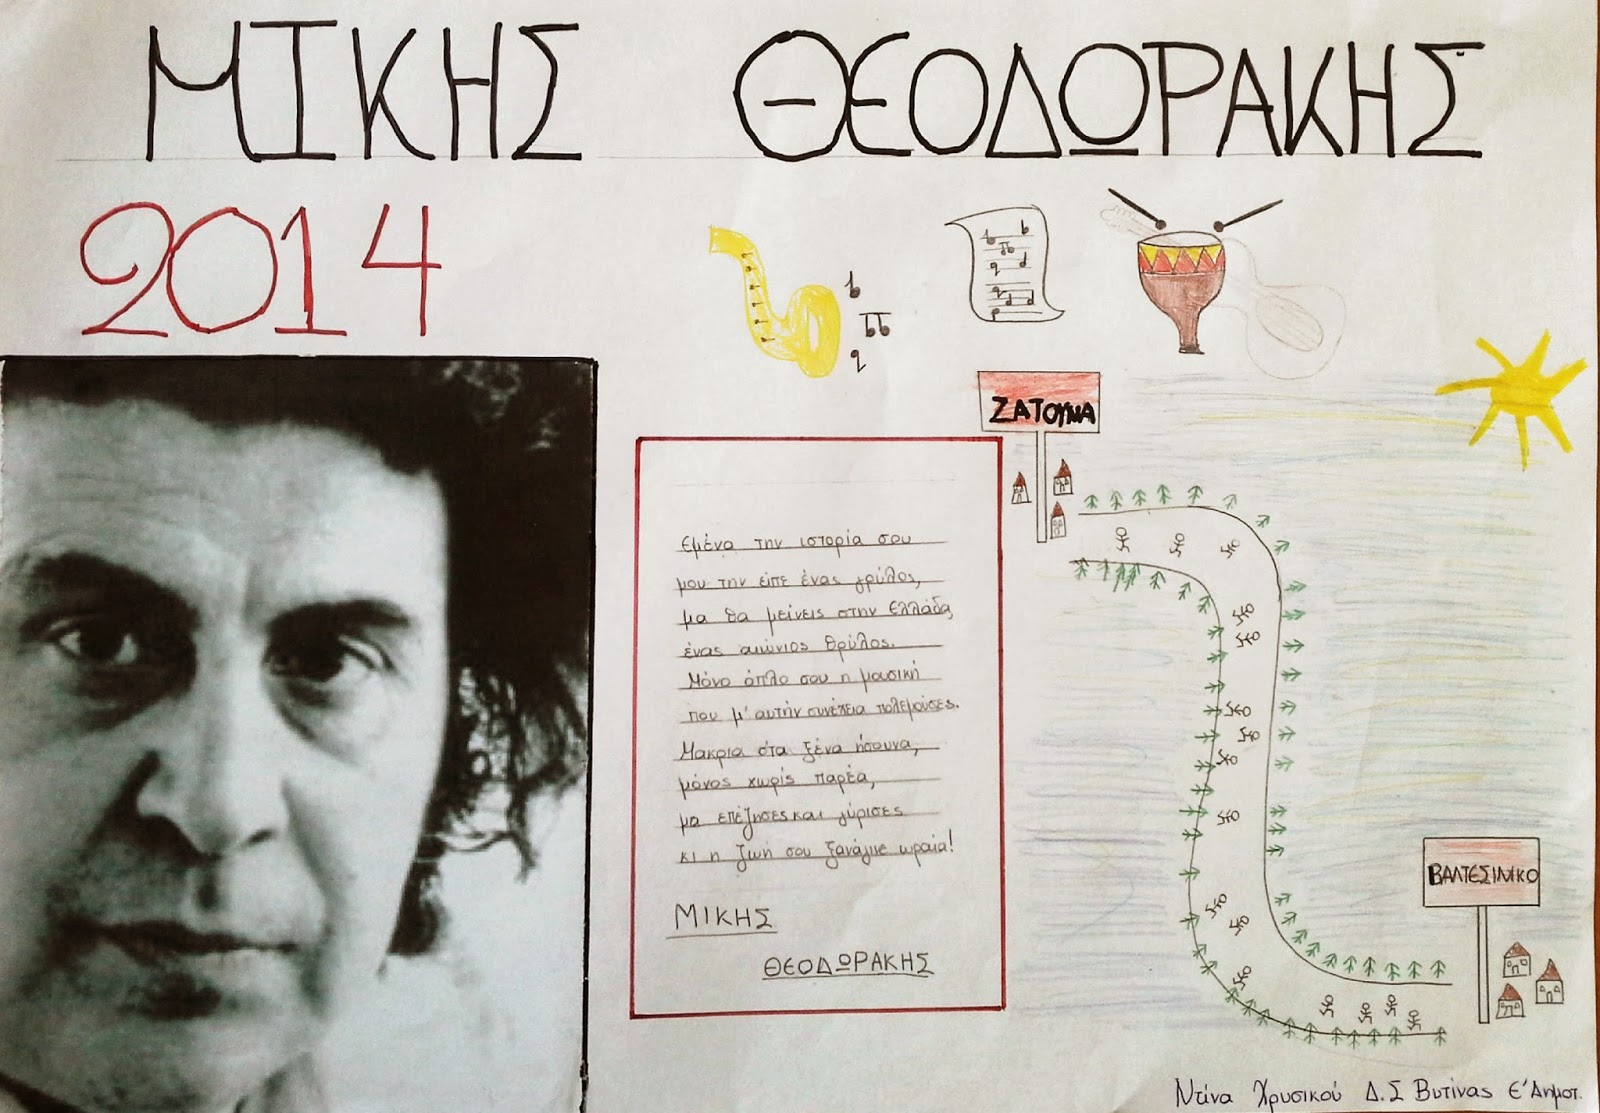 ΜΙΚΗΣ ΘΕΟΔΩΡΑΚΗΣ
2014
ΖΑΤΟΥΝΑ
Εμένα την ιστορία σου
μου την είπε ένας γρύλος,
μα θα μείνεις στην Ελλάδα,
ένας αιώνιος θρύλος.
Μόνο όπλο σου η μουσική
που μ' αυτήν συνέπεια πολεμούσες.
Μακρια στα ξένα ήσουνα,
μόνος χωρίς παρέα,
μα επέζησες και γύρισες
κι η ζωή σου ξανάγινε ωραία!
ΜΙΚΗΣ
ΘΕΟΔΩΡΑΚΗΣ
ΒΑΛΤΕΣΙΝΙΚΟ
Ντίνα Χρυσικού Δ.Σ Βυτίνας Ε' Δημοτ.